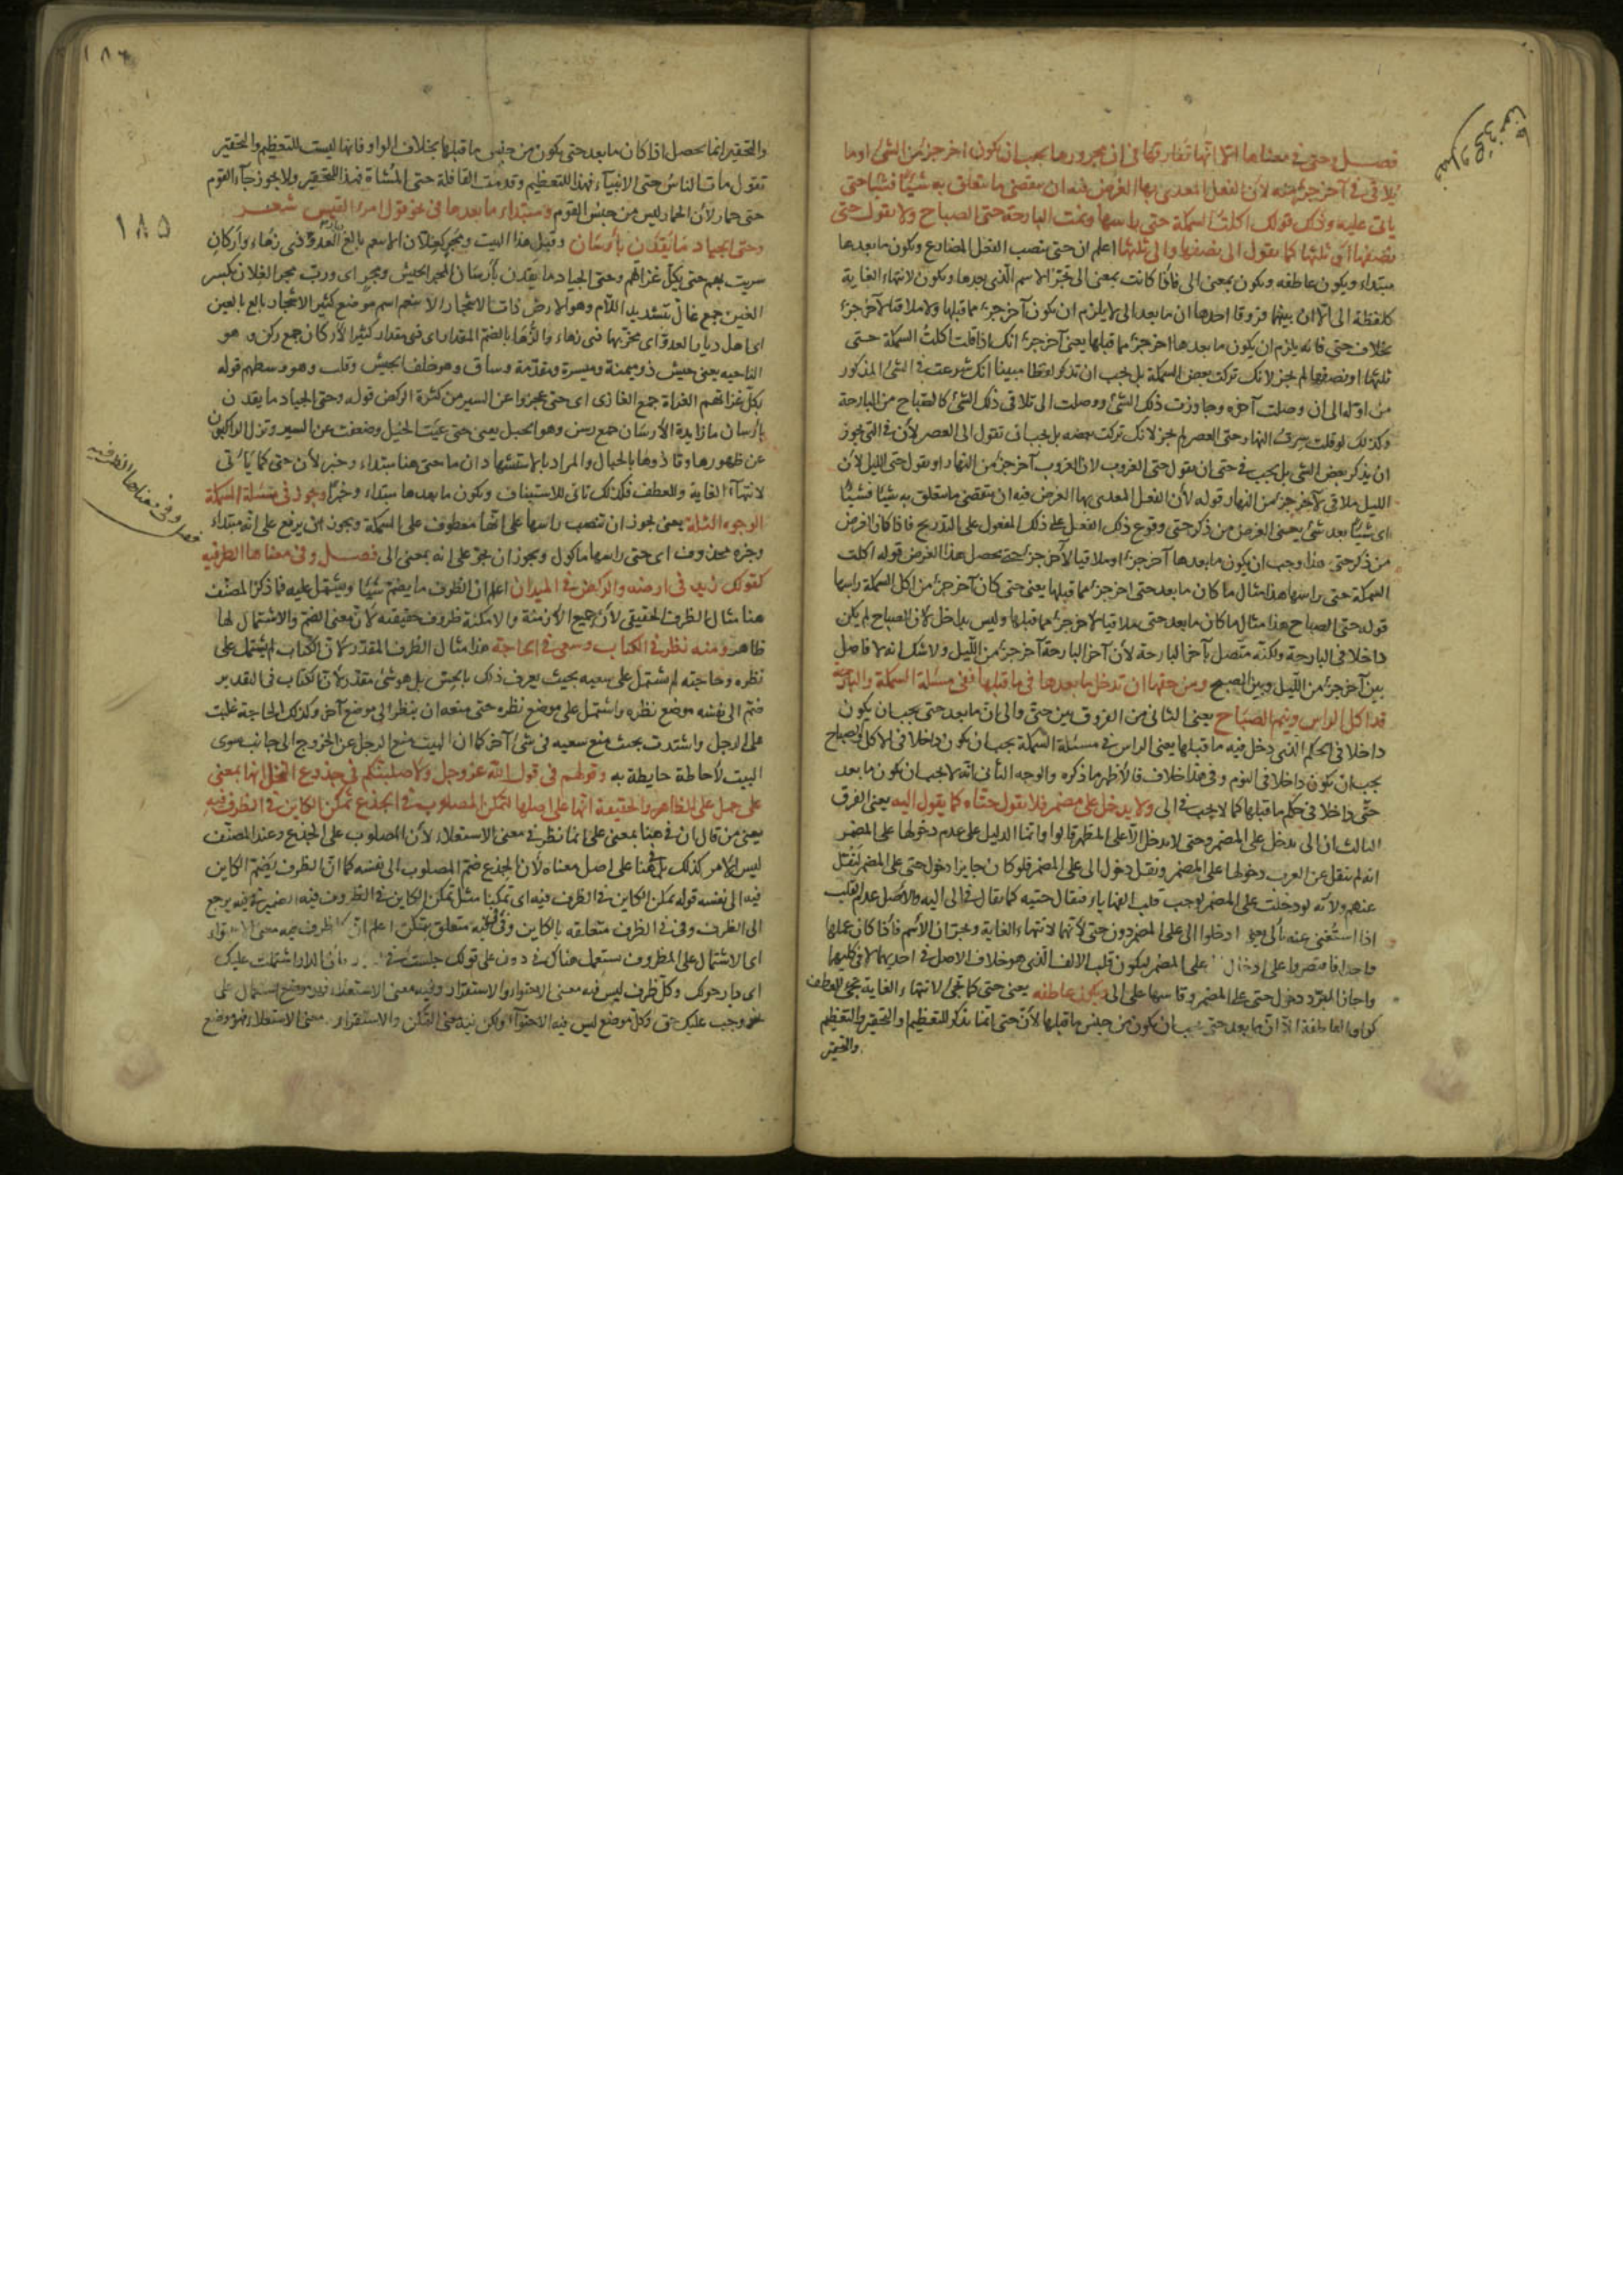 فصل وحتى في معناها الا انها تفارقها في ان مجرورها يجب ان يكون اخر جزء من الشئ او ما
يلاقي في آخر جزء منه لأن الفعل المعدى بها الغرض فيه ان يتقضى ما تعلق به شيئا فشيئا حتى
يأتى عليه وذلك قولك اكلت السمكة حتى راسها ونمت البارحة حتى الصباح ولا تقول حتى
نصفها أو ثلثها كما تقول الى نصفها والى ثلثها اعلم ان حتى ينصب الفعل المضارع ويكون ما بعدها
مبتداء ويكون عاطفه ويكون بمعنى الى فاذا كانت بمعنى الى تجر الاسم الذي بعدها ويكون لانتهاء الغاية
كلفظة الى الا ان بينهما فروقا احدها ان ما بعد الى لا يلزم ان يكون آخر جزء مما قبلها ولا ملاقيا لآخر جزء
بخلاف حتى فانه يلزم ان يكون ما بعدها اخر جزء مما قبلها يعنى آخر جزء انك اذا قلت اكلت السمكة حتى
ثلثها او نصفها لم يجز لانك تركت بعض السمكة بل يجب ان تذكر لفظا مبينا انك شرعت في الشئ المذكور
من اوله الى ان وصلت آخره وجاوزت ذلك الشئ ووصلت الى تلاقى ذلك الشئ كالصباح من البارحة
وكذلك لو قلت سرت النهار حتى العصر لم يجز لانك تركت بعضه بل يجب ان تقول الى العصر لأن في الى يجوز
ان يذكر بعض الشئ بل يجب في حتى ان تقول حتى الغروب لان الغروب آخر جزء من النهار او تقول حتى الليل لأن
الليل ملاقي لآخر جزء من النهار قوله لأن الفعل المعدى بها الغرض فيه ان يتقضى ما تعلق به شيئا فشيئا
اى شيئا بعد شئ يعنى الغرض من ذكر حتى وقوع ذلك الفعل على ذلك المفعول على التدريج فاذا كان الغرض
من ذكر حتى هذا وجب ان يكون ما بعدها آخر جزء او ملاقيا لآخر جزء حتى يحصل هذا الغرض قوله اكلت
السمكة حتى راسها هذا مثال ما كان ما بعد حتى اخر جزء مما قبلها يعنى حتى كان آخر جزء من اكل السمكة راسها
قوله حتى الصباح هذا مثال ما كان ما بعد حتى ملاقيا لآخر جزء مما قبلها وليس بداخل لان الصباح لم يكن
داخلا في البارحة ولكنه متصل بآخر البارحة لأن آخر البارحة آخر جزء من الليل ولا شك انه لا فاصل
بين آخر جزء من الليل وبين الصبح ومن حقها ان تدخل ما بعدها في ما قبلها ففي مسئلة السمكة والبارحة
قد اكل الراس ونيم الصباح يعنى الثانى من الفروق بين حتى والى ان ما بعد حتى يجب ان يكون
داخلا في الحكم الذي دخل فيه ما قبلها يعنى الراس في مسئلة السمكة يجب ان يكون داخلا في الاكل والصباح
يجب ان يكون داخلا في النوم وفى هذا خلاف فالأظهر ما ذكره والوجه الثانى انه لا يجب ان يكون ما بعد
حتى داخلا في حكم ما قبلها كما لا يجب في الى ولا يدخل على مضمر فلا تقول حتاه كما يقول اليه يعنى الفرق
الثالث ان الى تدخل على المضمر وحتى لا تدخل الا على المظهر قالوا وانما الدليل على عدم دخولها على المضمر
انه لم ينقل عن العرب دخولها على المضمر ونقل دخول الى على المضمر فلو كان جايزا دخول حتى على المضمر لنقل
عنهم ولأنه لو دخلت على المضمر لوجب قلب الفها ياء فيقال حتيه كما يقال في الى اليه والاصل عدم القلب
اذا استغنى عنه بالى ادخلوا الى على المضمر دون حتى لأنهما لانتهاء الغاية ويجران الأسم فاذا كان عملهما
واحدا فاقتصروا على ادخال على المضمر ليكون قلب الالف الذي هو خلاف الاصل في احديهما لا في كليهما
واجاز المبرد دخول حتى على المضمر وقاسها على الى ويكون عاطفه يعنى حتى كما تجئ لانتهاء الغاية تجئ للعطف
كواو العاطفة الا ان ما بعد حتى يجب ان يكون من جنس ما قبلها لأن حتى انما تذكر للتعظيم او التحقير والتعظيم
والتحقير
والتحقير انما يحصل اذا كان ما بعد حتى يكون من جنس ما قبلها بخلاف الواو فانها ليست للتعظيم والتحقير
تقول مات الناس حتى الانبياء فهذا للتعظيم وقدمت القافلة حتى المشاة فهذا للتحقير ولا يجوز جآء القوم
حتى حمار لأن الحمار ليس من جنس القوم ومبتداء ما بعدها في نحو قول امرء القيس شعر
وحتى الجياد ما يقدن بأرسان وقبل هذا البيت ومجر كغلان الانيعم بالغ ديار العدو ذى زهاء وأركان
سريت بهم حتى يكل غزاتهم وحتى الجياد ما يقدن بأرسان المجر الجيش ومجر اى ورب مجر الغلان بكسر
الغين جمع غال بتشديد اللام وهو الارض ذات الاشجار الانيعم اسم موضع كثير الاشجار بالغ بالعين
اى اهل ديار العدو اى مخربها ذى زهاء والزهاء بالضم المقدار اى ذى مقدار كثير الأركان جمع ركن وهو
الناحيه يعنى جيش ذو ميمنة وميسرة ومقدمة وساق وهو خلف الجيش وقلب وهو وسطهم قوله
يكل غزاتهم الغزاة جمع الغازى اى حتى عجزوا عن السير من كثرة الركض قوله وحتى الجياد ما يقدن
بأرسان ما زايدة الأرسان جمع رسن وهو الحبل يعنى حتى عيت الخيل وضعفت عن السير ونزل الراكبون
عن ظهورها وقادوها بالحبال والمراد بالاستشهاد ان ما حتى هنا مبتداء وخبر لأن حتى كما يأتى
لانتهآء الغاية وللعطف فكذلك تاتى للاستيناف ويكون ما بعدها مبتداء وخبرا ويجوز في مسئلة السمكة
الوجوه الثلثة يعنى يجوز ان تنصب راسها على انها معطوف على السمكة ويجوز ان يرفع على انه مبتداء
وخبره محذوف اى حتى راسها ماكول ويجوز ان يجر على انه بمعنى الى فصل وفى معناها الظرفيه
كقولك زيد في ارضه والركض في الميدان اعلم ان الظرف ما يضم شيئا ويشتمل عليه فما ذكر المصنف
هنا مثال الظرف الحقيقى لأن جميع الازمنة والامكنة ظروف حقيقه لأن معنى الضم والاشتمال لها
ظاهر ومنه نظر في الكتاب وسعى في الحاجة هذا مثال الظرف المقدر لان الكتاب لم يشتمل على
نظره وحاجته لم تشتمل على سعيه بحيث يعرف ذلك بالحس بل هو شئ مقدر لأن الكتاب في التقدير
ضم الى نفسه موضع نظره واشتمل على موضع نظره حتى منعه ان ينظر الى موضع آخر وكذلك الحاجة غلبت
على الرجل واشتدت بحيث منع سعيه في شئ آخر كما ان البيت منع الرجل عن الخروج الى جانب سوى
البيت لأحاطة حايطة به وقولهم في قول الله عز وجل ولأصلبنكم في جذوع النخل انها بمعنى
على حمل على الظاهر والحقيقة انها على اصلها لتمكن المصلوب في الجذع تمكن الكاين في الظرف فيه
يعنى من قال ان في هنا بمعنى على انما نظر في معنى الاستعلاء لأن المصلوب على الجذع وعند المصنف
ليس الامر كذلك بل هنا على اصل معناه لأن الجذع ضم المصلوب الى نفسه كما ان الظرف يضم الكاين
فيه الى نفسه قوله تمكن الكاين في الظرف فيه اى تمكينا مثل تمكن الكاين في الظرف فيه الضمير في فيه يرجع
الى الظرف وفى في الظرف متعلقه بالكاين وفى فيه متعلق بتمكن اعلم ان الظرف فيه معنى الاحتواء
اى الاشتمال على المظروف يستعمل هناك في دون على قولك جلست في لأن الدار اشتملت عليك
اى دار حولك وكل ظرف ليس فيه معنى الاحتواء والاستقرار وفيه معنى الاستعلاء فهو موضع استعمال على
نحو وجب عليك حق وكل موضع ليس فيه الاحتوآء ولكن فيه معنى التمكن والاستقرار معنى الاستعلاء فهو موضع
فصل وفى معناها الظرفيه
١٨٥
١٨٦